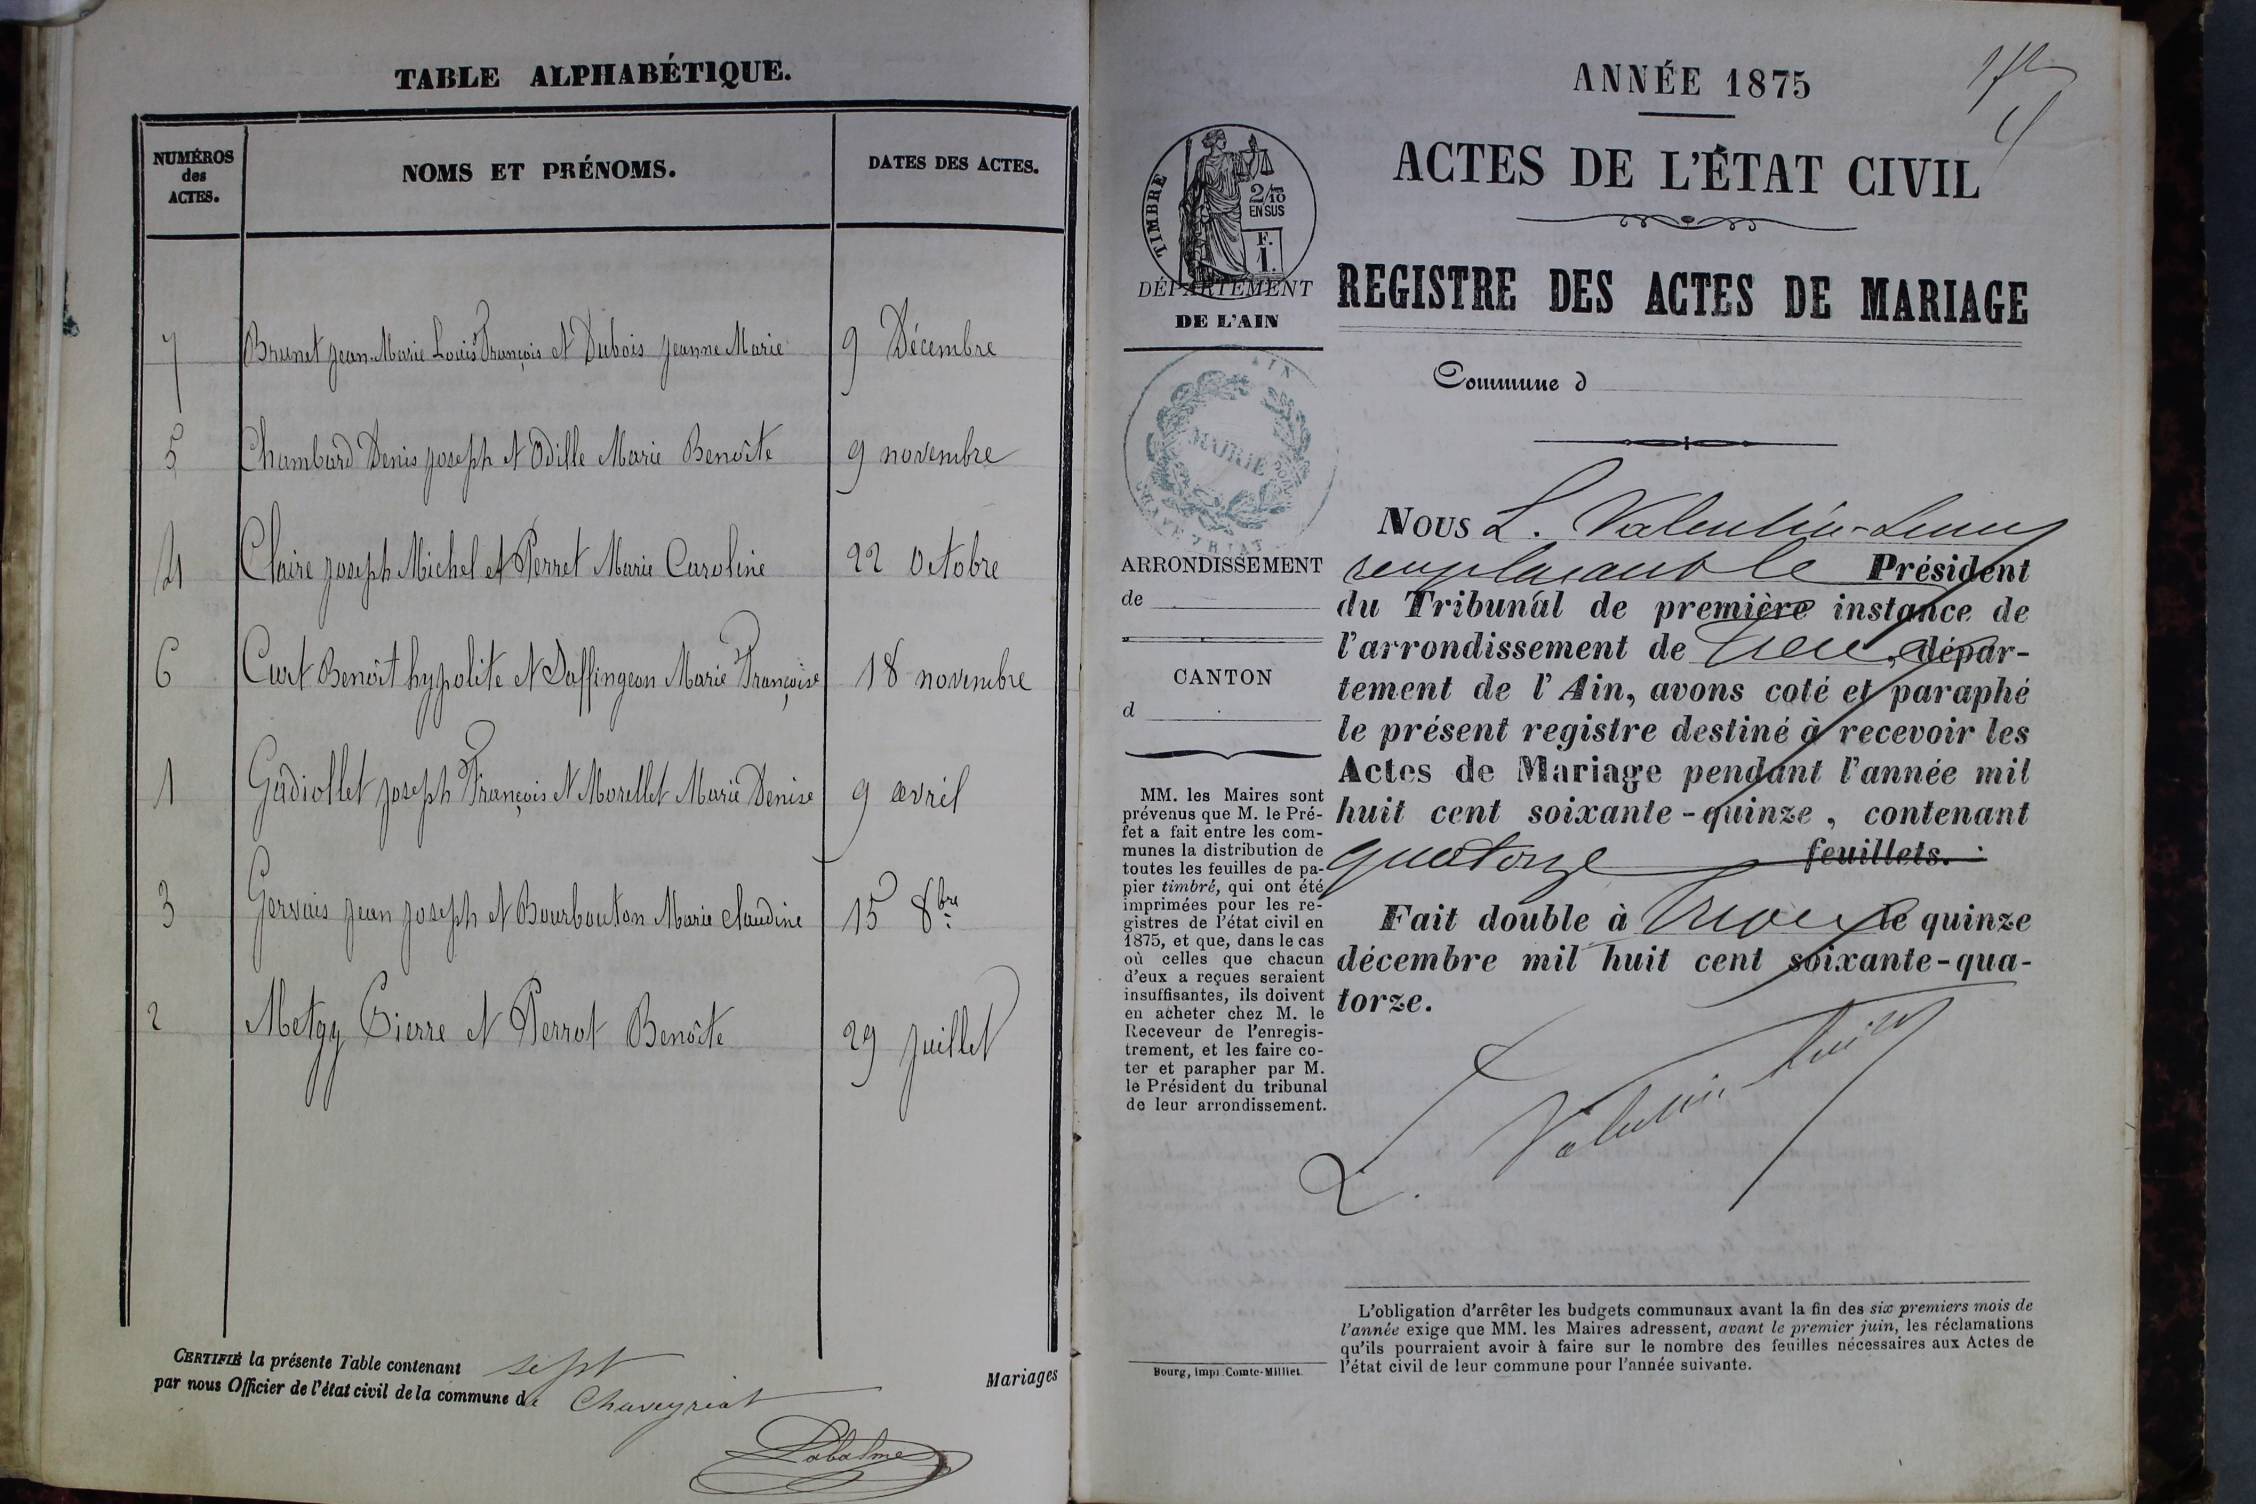 TABLE ALPHABÉTIQUE.
NUMÉROS
des
ACTES.
NOMS ET PRÉNOMS.
DATES DES ACTES.
7 Brunet Jean-Marie Louis François et Dubois Jeanne Marie 9 Décembre
5 Chambard Denis Joseph et Odille Marie Benoîte 9 novembre
4 Claire Joseph Michel et Perret Marie Caroline 22 Octobre
6 Curt Benoît hypolite et Daffingeon Marie Françoise 18 novembre
1 Gadiollet Joseph François et Morellet Marie Denise 9 avril
3 Gervais Jean Joseph et Bourbouton Marie Claudine 15 8bre
2 Metgy Pierre et Perrot Benoîte 29 Juillet
CERTIFIÉ la présente Table contenant sept Mariages
par nous Officier de l'état civil de la commune de Chaveyriat
Labalme
ANNÉE 1875
ACTES DE L'ÉTAT CIVIL
REGISTRE DES ACTES DE MARIAGE
TIMBRE
2/10
EN SUS
F.
1.
DÉPARTEMENT
DE L'AIN
AIN
MAIRIE
ARRONDISSEMENT
de
CANTON
d
MM. les Maires sont
prévenus que M. le Pré-
fet a fait entre les com-
munes la distribution de
toutes les feuilles de pa-
pier timbré, qui ont été
imprimées pour les re-
gistres de l'état civil en
1875, et que, dans le cas
où celles que chacun
d'eux a reçues seraient
insuffisantes, ils doivent
en acheter chez M. le
Receveur de l'enregis-
trement, et les faire co-
ter et parapher par M.
le Président du tribunal
de leur arrondissement.
Bourg, impr. Comte-Milliet.
Commune d
NOUS L. Valentin
remplaçant le Président
du Tribunal de première instance de
l'arrondissement de , dépar-
tement de l'Ain, avons coté et paraphé
le présent registre destiné à recevoir les
Actes de Mariage pendant l'année mil
huit cent soixante-quinze, contenant
quatorze feuillets.
Fait double à le quinze
décembre mil huit cent soixante-qua-
torze.
L. Valentin
L'obligation d'arrêter les budgets communaux avant la fin des six premiers mois de
l'année exige que MM. les Maires adressent, avant le premier juin, les réclamations
qu'ils pourraient avoir à faire sur le nombre des feuilles nécessaires aux Actes de
l'état civil de leur commune pour l'année suivante.